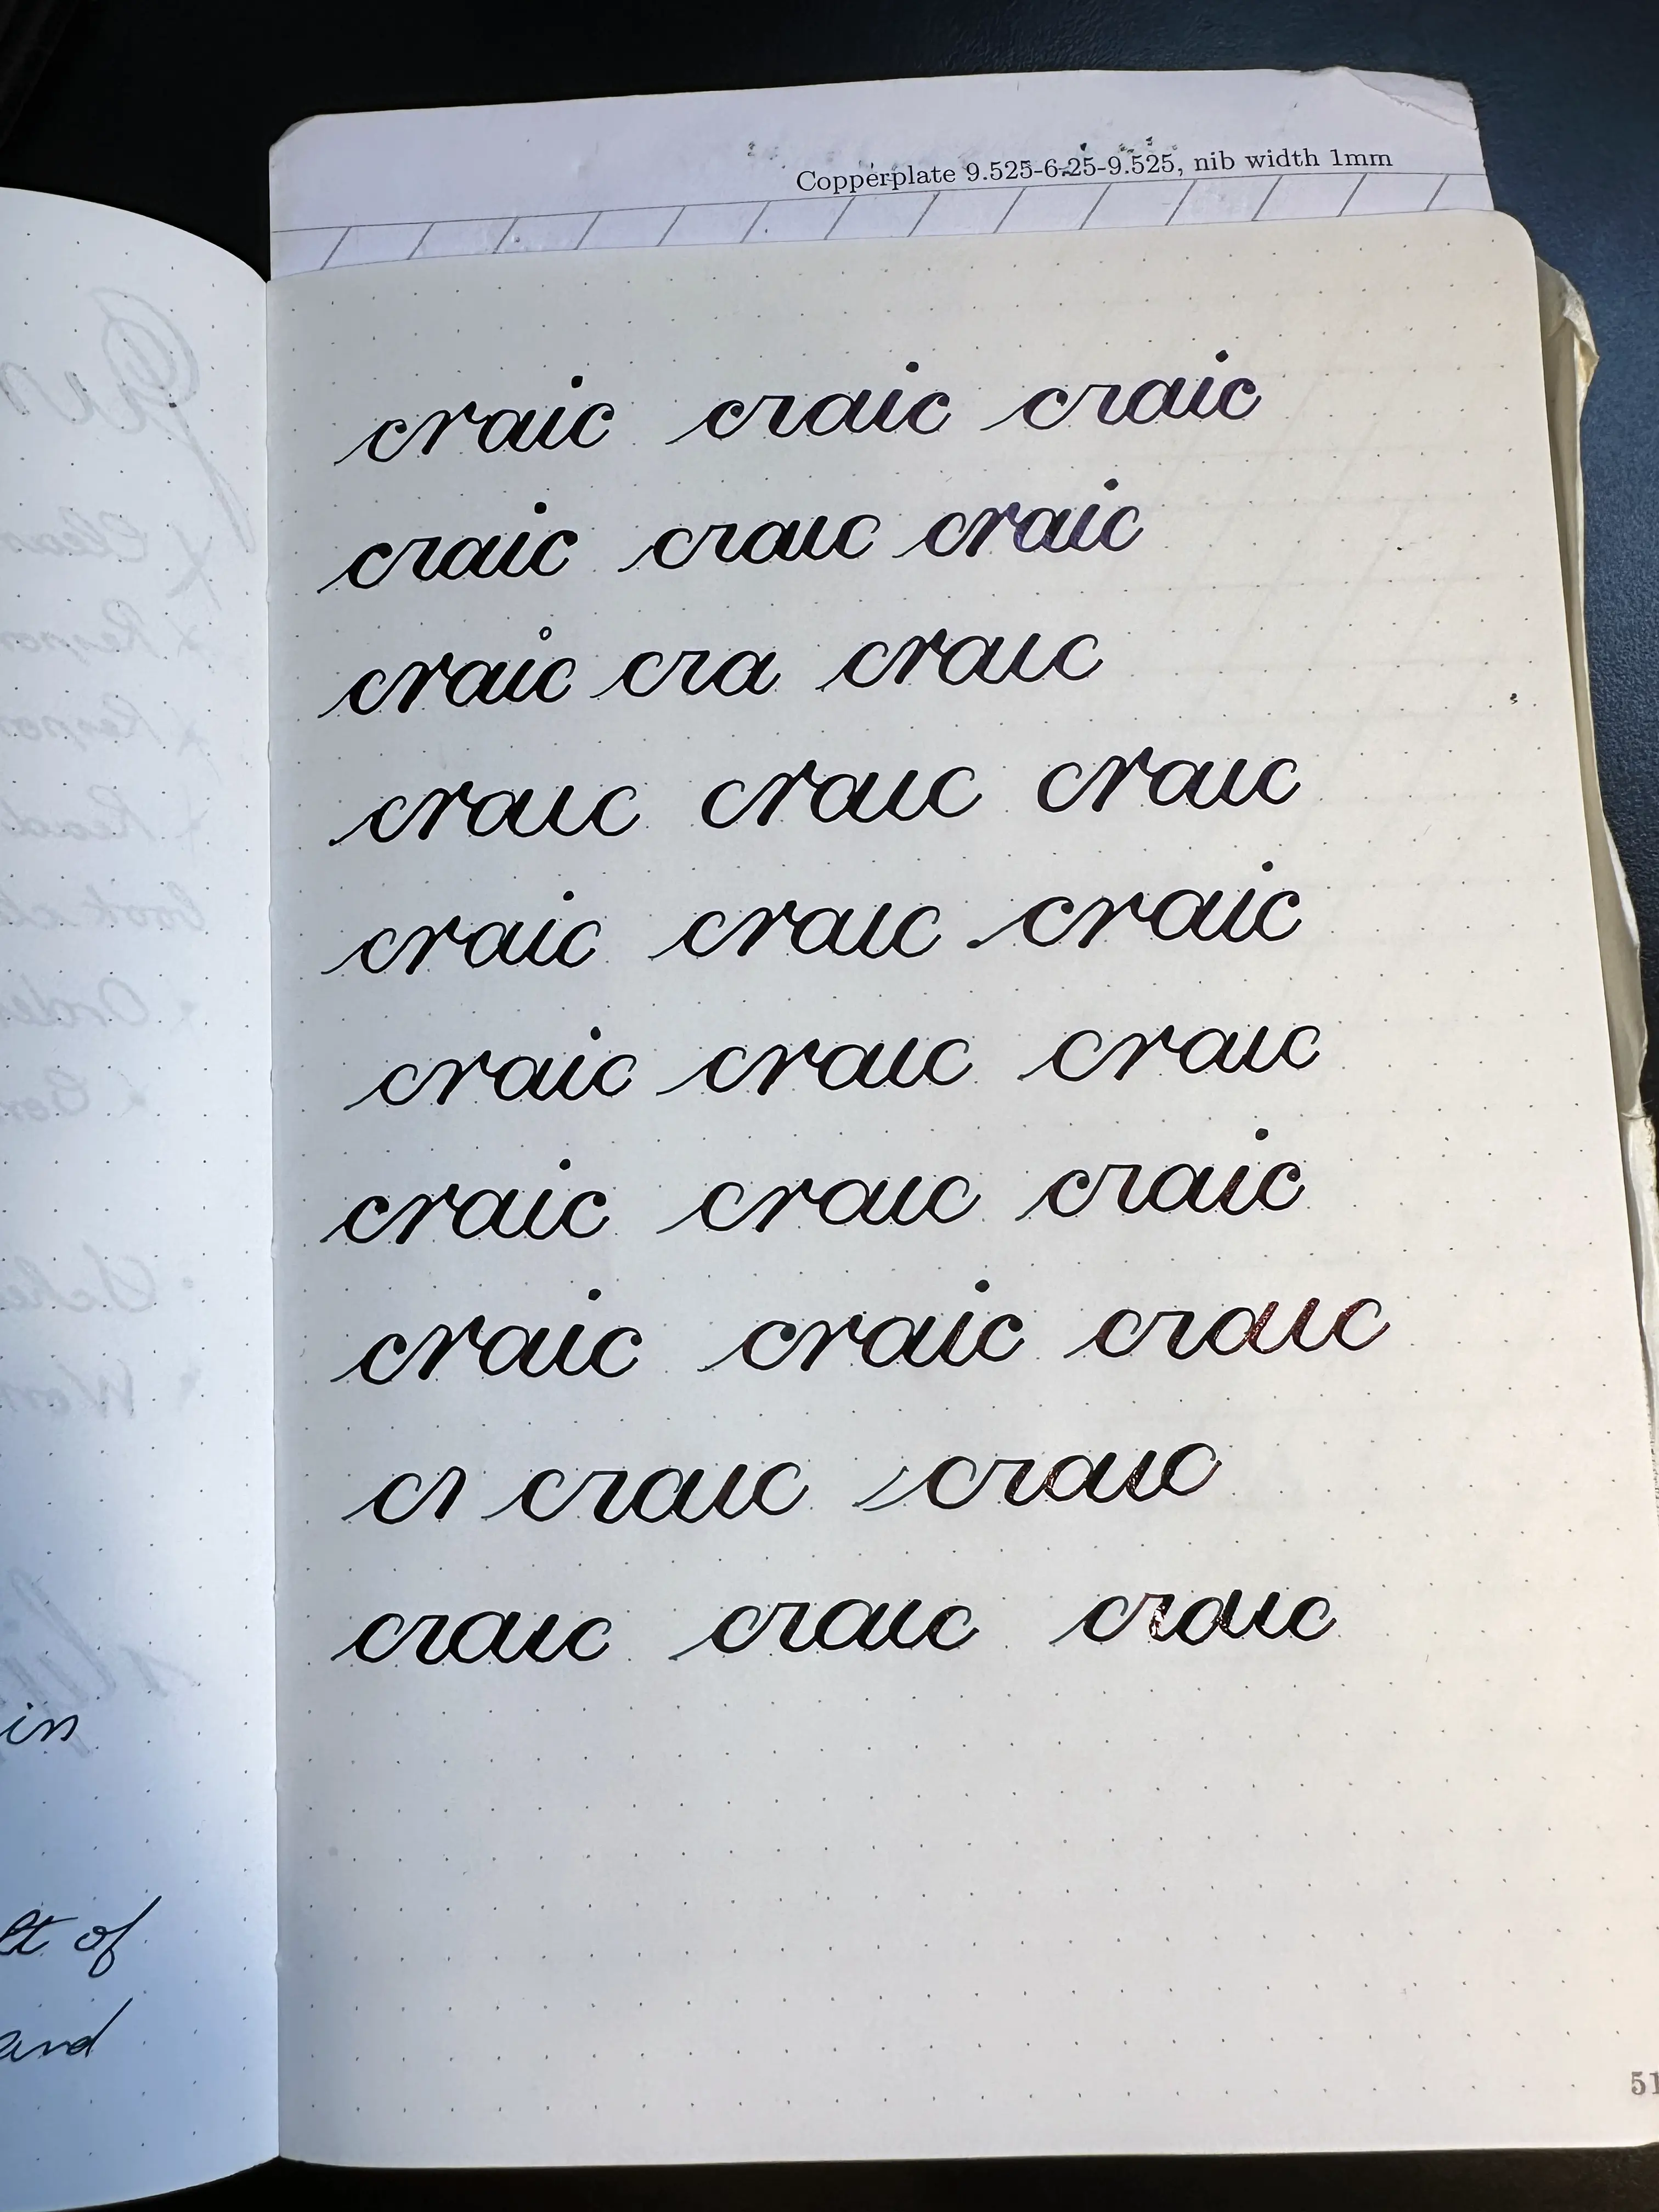 Copperplate 9.525-6.25-9.525, nib width 1mm
craic craic craic
craic craıc craic
craic cra craıc
craıc craıc craıc
craic craıc craic
craic craıc craıc
craic craıc craic
craic craic craıc
cr craıc craıc
craıc craıc craıc
in
of
and
51